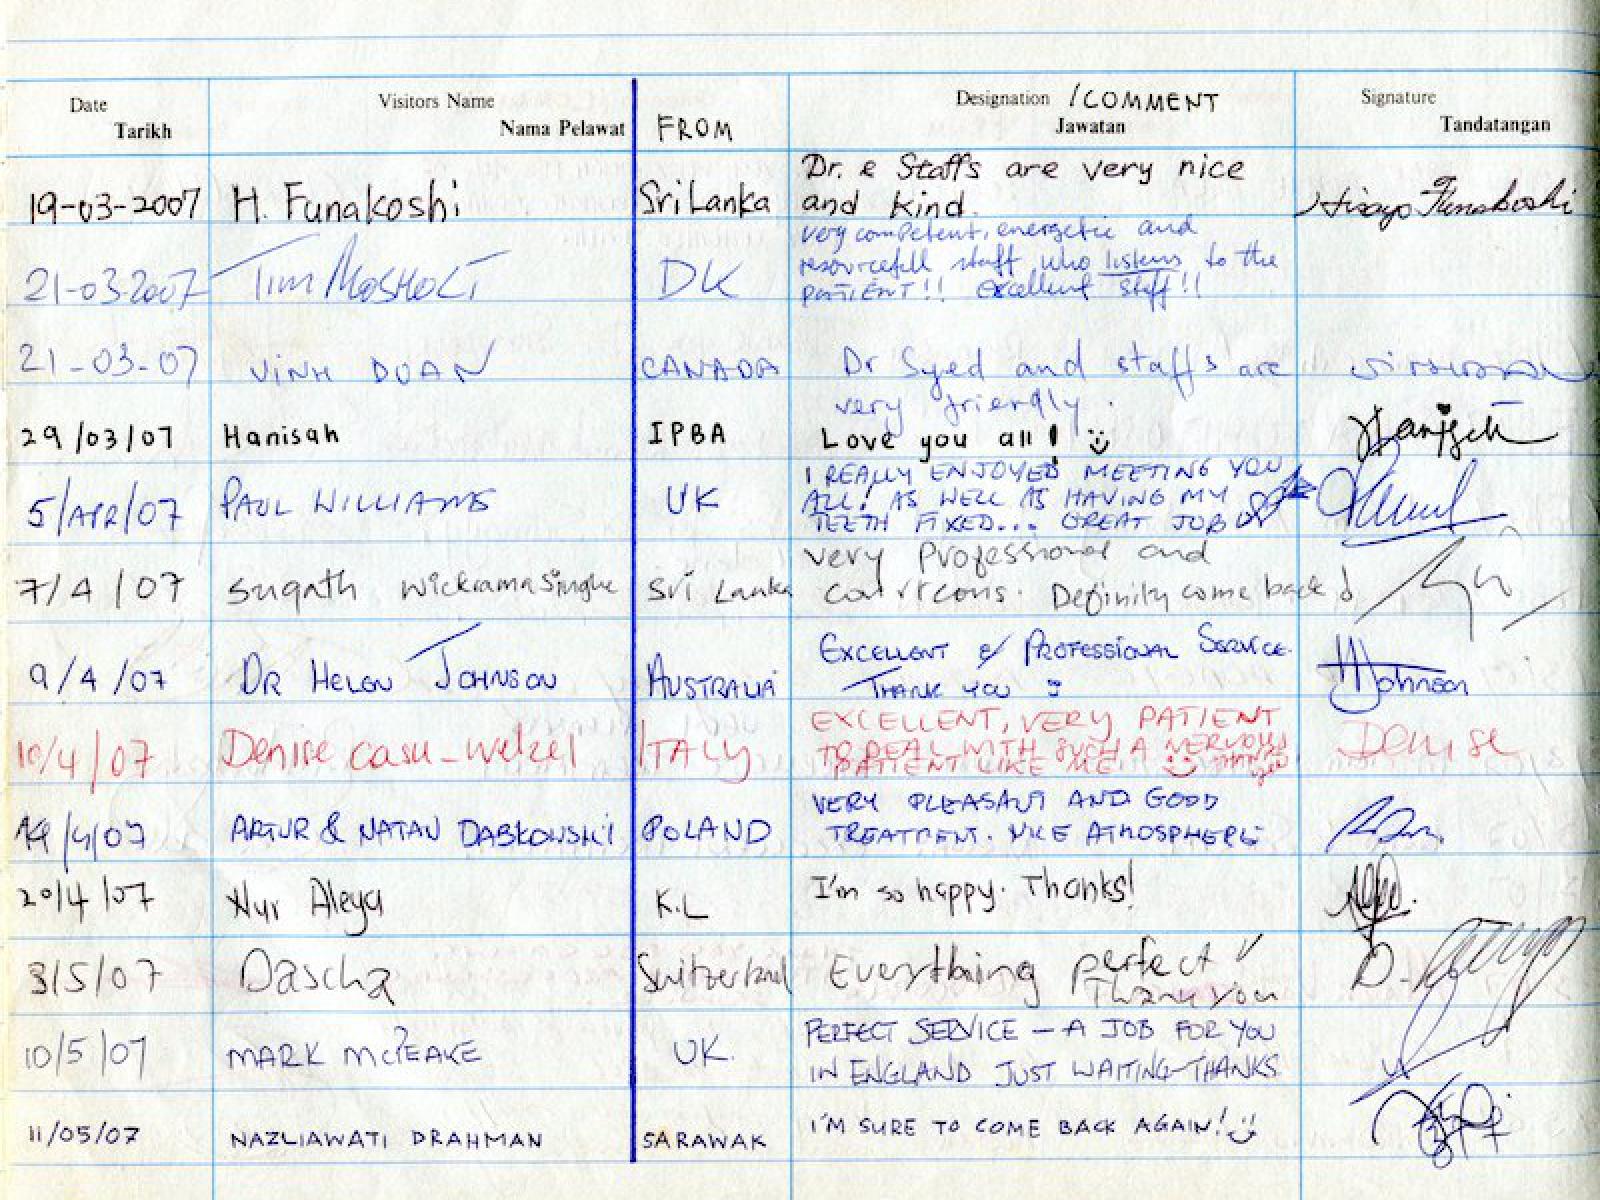 Date Visitors Name Designation /COMMENT Signature
Tarikh Nama Pelawat FROM Jawatan Tandatangan
Dr. & Staffs are very nice
19-03-2007 H. Funakoshi Sri Lanka and kind. Hisayo Funakoshi
very competent, energetic and
21-03-2007 Tim DK resourcefull staff who listens to the
PATIENT!! Excellent staff!!
21-03-07 VINH DOAN CANADA Dr Syed and staffs are
very friendly.
29/03/07 Hanisah IPBA Love you all!
I REALLY ENJOYED MEETING YOU
5/APR/07 PAUL WILLIAMS UK ALL! AS WELL AS HAVING MY
TEETH FIXED... GREAT JOB
very Professional and
7/4/07 Sugath Wickramasinghe Sri Lanka Definitly come back
EXCELLENT & PROFESSIONAL SERVICE.
9/4/07 DR HELEN JOHNSON AUSTRALIA THANK YOU HJohnson
EXCELLENT, VERY PATIENT
10/4/07 Denise casu-welzel ITALY TO DEAL WITH SUCH A NERVOUS Denise
PATIENT LIKE ME THANK YOU
VERY PLEASANT AND GOOD
14/4/07 ARTUR & NATAN DABKOWSKI POLAND TREATMENT. NICE ATMOSPHERE
20/4/07 Nur Aleya K.L I'm so happy. Thanks!
3/5/07 Dascha Switzerland Everything perfect!
Thank you
PERFECT SERVICE – A JOB FOR YOU
10/5/07 MARK McPEAKE UK. IN ENGLAND JUST WAITING–THANKS
11/05/07 NAZLIAWATI DRAHMAN SARAWAK I'M SURE TO COME BACK AGAIN!